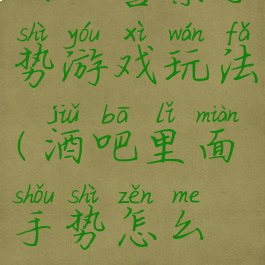 shì yóu xì wán fǎ
势游戏玩法
jiǔ bā lǐ miàn
(酒吧里面
shǒu shì zěn me
手势怎么